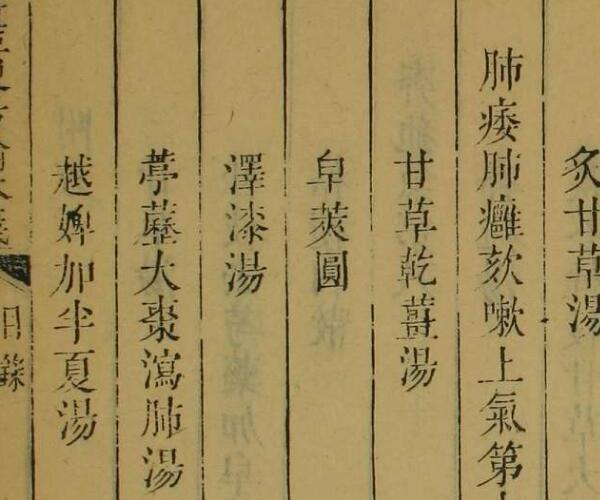 炙甘草湯
肺痿肺癰欬嗽上氣第
甘草乾薑湯
皁莢圓
澤漆湯
葶藶大棗瀉肺湯
越婢加半夏湯
目錄